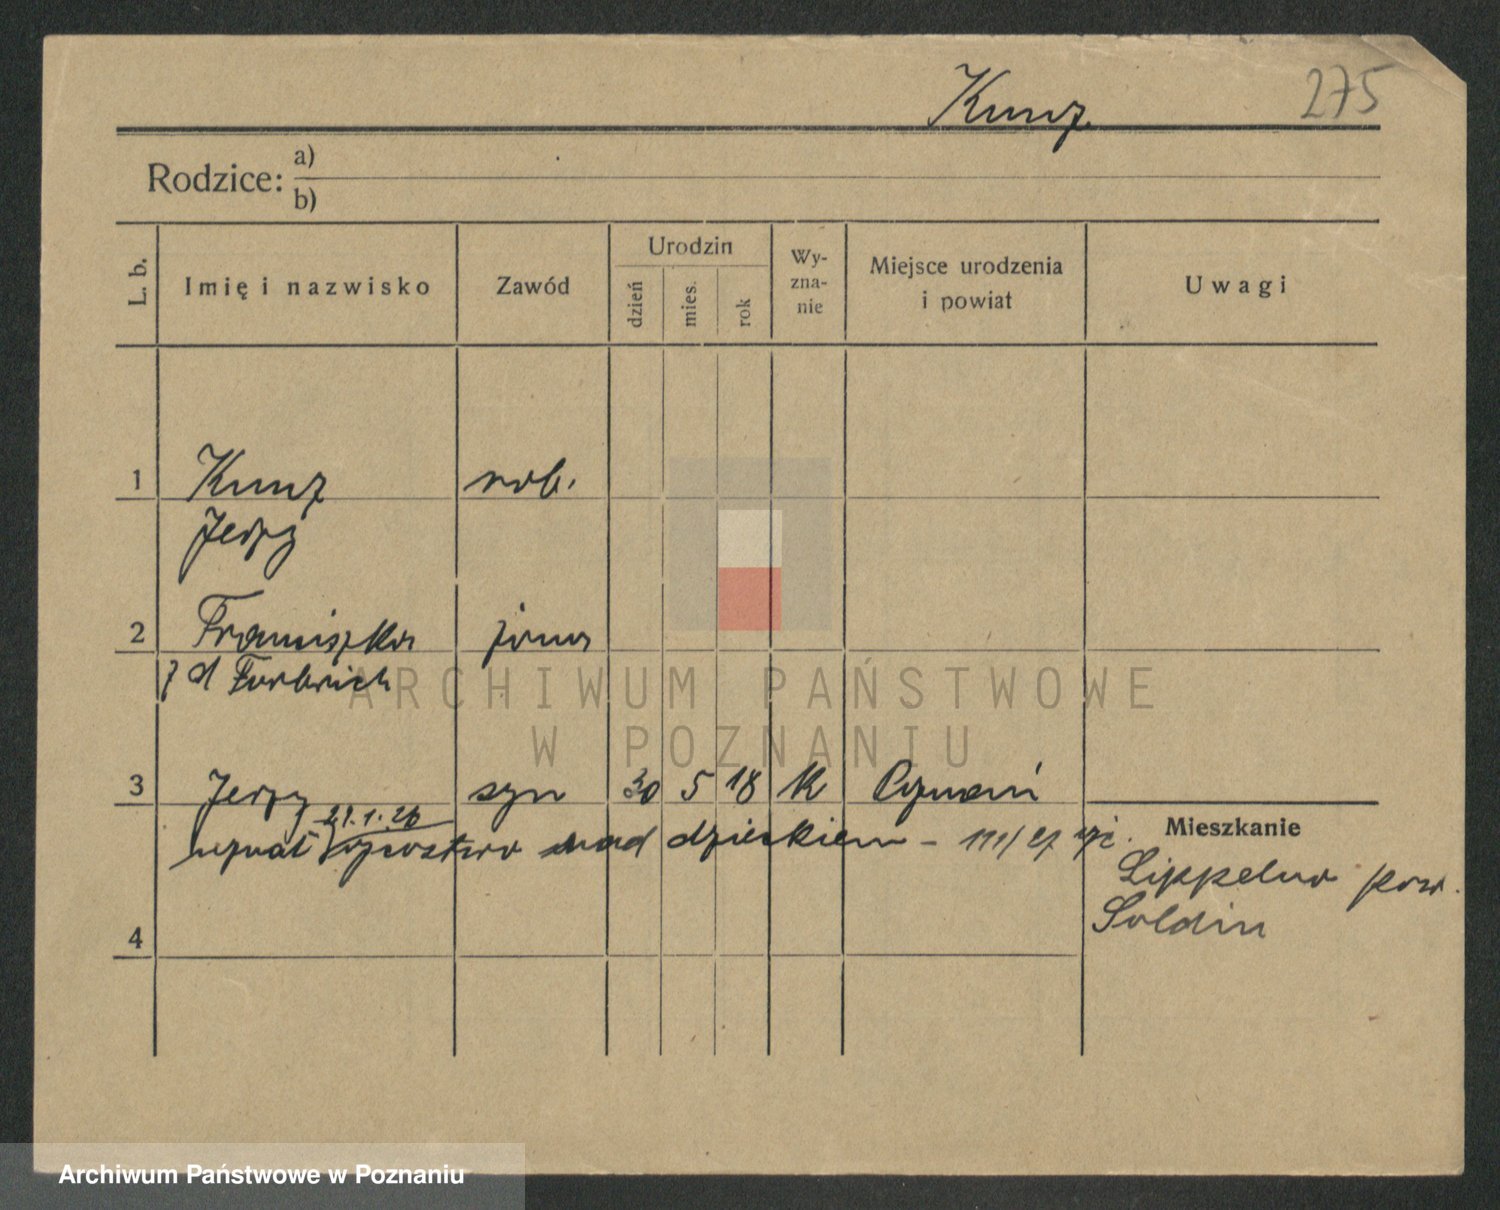 Kunz
275
Rodzice: a)
b)
L. b. Imię i nazwisko Zawód Urodzin dzień mies. rok Wy-zna-nie Miejsce urodzenia i powiat Uwagi
1 Kunz rob.
Jerzy
2 Franciszka żona
z d Furbrich
3 Jerzy syn 30 5 18 k
21.1.26
uznał ojcostwo nad dzieckiem - 111/27
Mieszkanie
Lippelno pow.
Soldin
4
ARCHIWUM PAŃSTWOWE
W POZNANIU
Archiwum Państwowe w Poznaniu